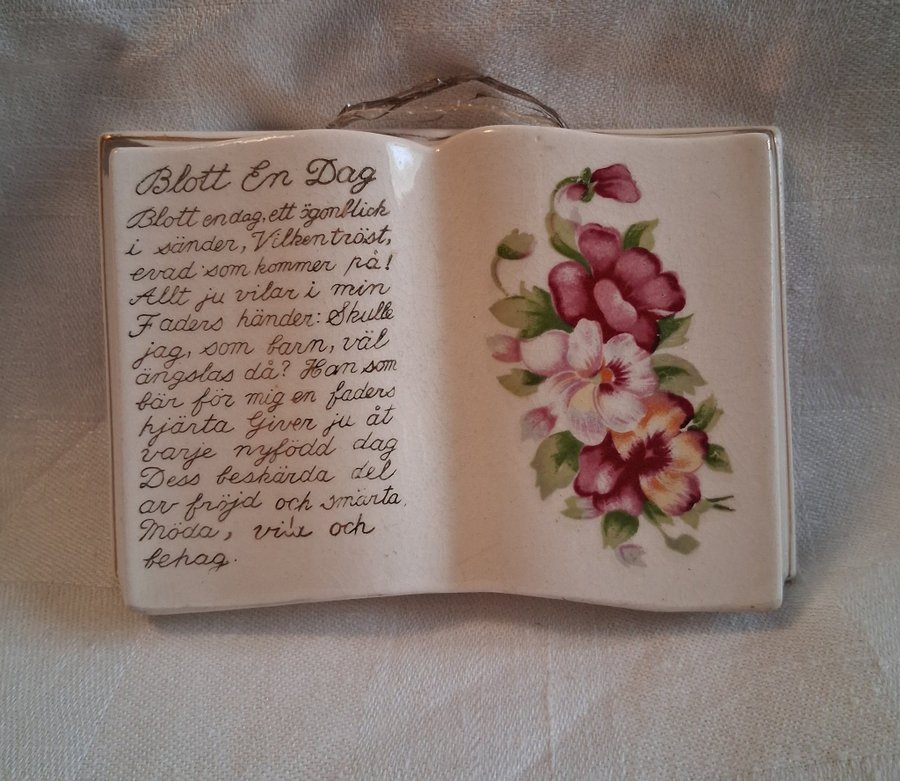 Blott En Dag
Blott en dag, ett ögonblick
i sänder, Vilken tröst,
evad som kommer på!
Allt ju vilar i min
Faders händer: Skulle
jag, som barn, väl
ängslas då? Han som
bär för mig en faders
hjärta Giver ju åt
varje nyfödd dag
Dess beskärda del
av fröjd och smärta,
Möda, vila och
behag.